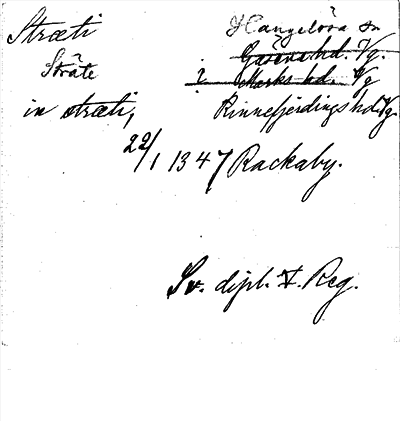 Stræti Hangelösa sn
Gäsene hd. Vg.
Sträte ? Marks hd. Vg
in stræti, Kinnefjerdings hd Vg.
22/1 1347 Rackaby.
Sv. dipl. V. Reg.